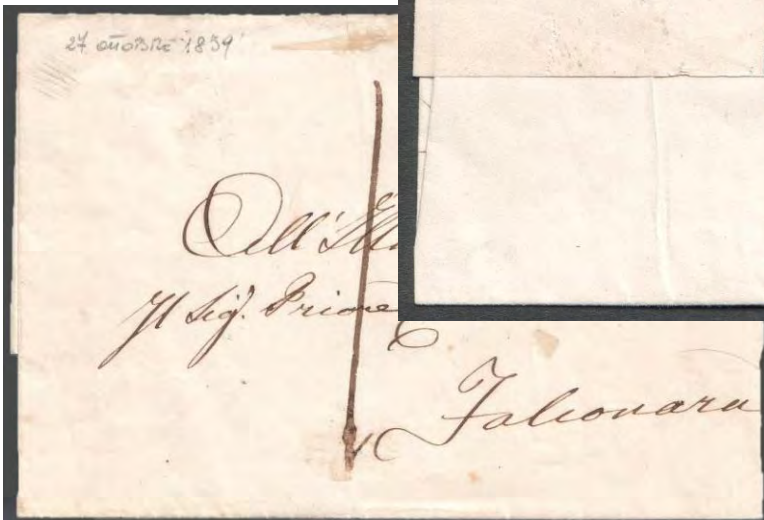 27 OTTOBRE 1839
All'Ill
Il Sig. Priore
Falconara